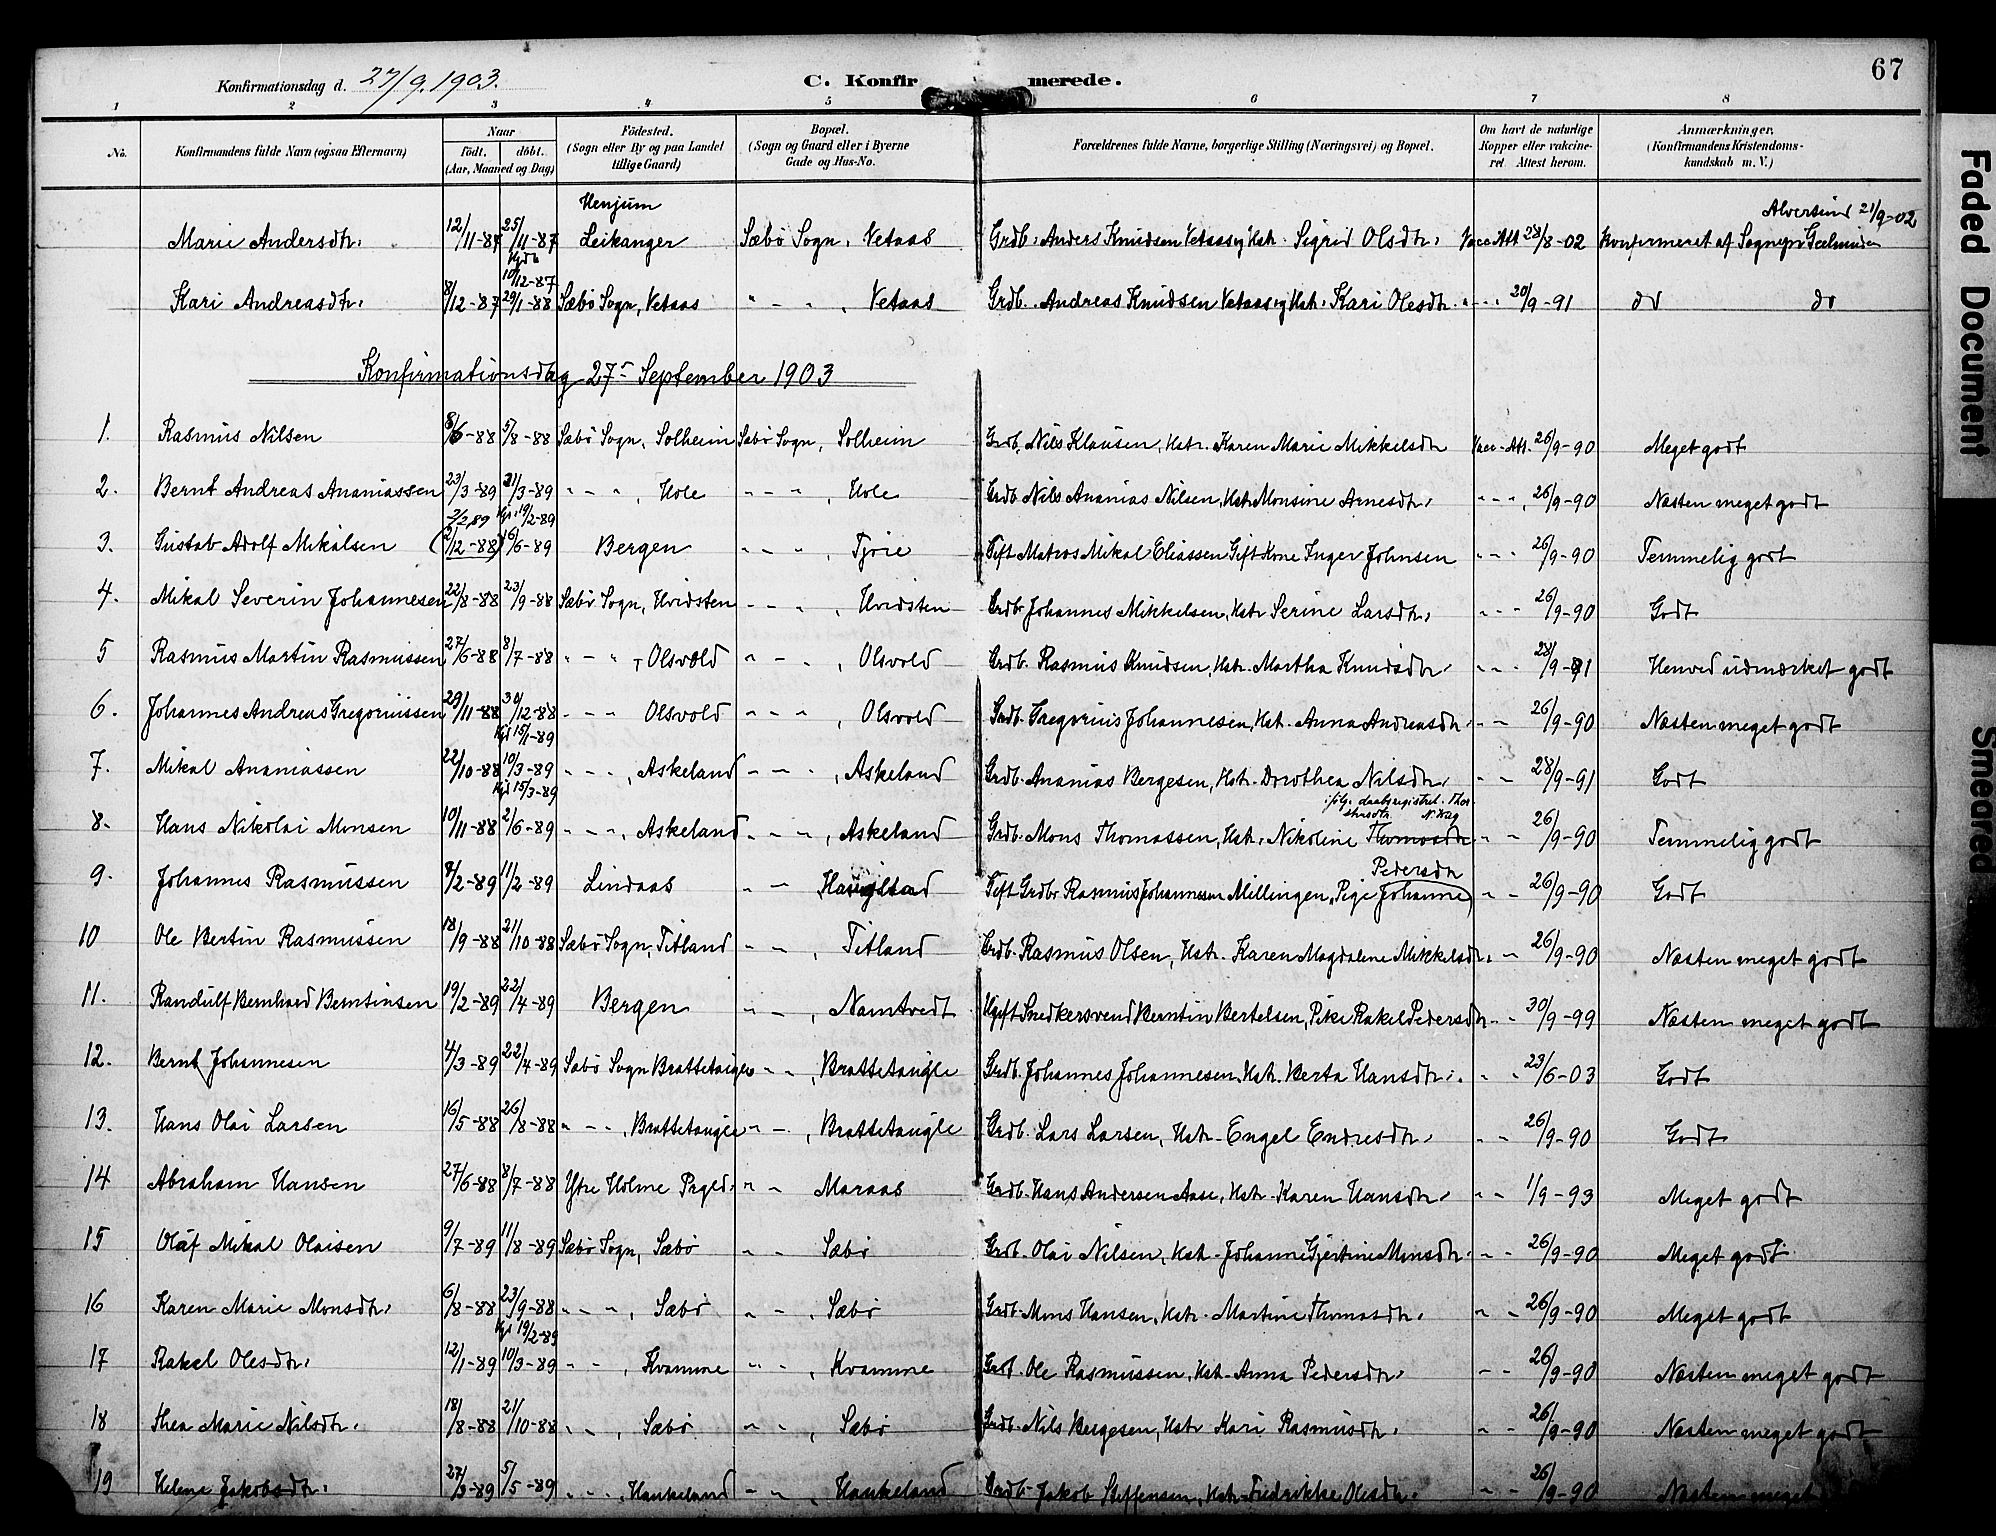 67
Konfirmationsdag d. 27/9. 1903.
C. Konfirmerede.
1 2 3 4 5 6 7 8
No.
Konfirmandens fulde Navn (ogsaa Efternavn)
Naar
født. døbt.
(Aar, Maaned og Dag)
Fødested.
(Sogn eller By og paa Landet
tillige Gaard)
Bopæl.
(Sogn og Gaard eller i Byerne
Gade og Hus-No.
Forældrenes fulde Navne, borgerlige Stilling (Næringsvei) og Bopæl.
Om havt de naturlige
Kopper eller vakcine-
ret. Attest herom.
Anmærkninger,
(Konfirmandens Kristendoms-
kundskab m. V.)
Henjum Alversund 21/9-02
Marie Andersdtr. 12/11-87 25/11-87 Leikanger Sæbø Sogn, Vetaas Grdb. Anders Knudsen Vetaas og Hstr. Sigrid Olsdtr. Vacc Att 28/8-02 Konfirmeret af Sognepr
Hjdb 10/12-87
Kari Andreasdtr. 8/12-87 29/1-88 Sæbø Sogn, Vetaas " - " , Vetaas Grdb. Andreas Knudsen Vetaas og Hstr. Kari Olesdtr. " - " 20/9-91 do do
Konfirmationsdag 27de September 1903
1. Rasmus Nilsen 8/6-88 5/8-88 Sæbø Sogn, Solheim Sæbø Sogn, Solheim Grdb. Nils Klausen, Hstr. Karen Marie Mikkelsdtr Vacc. Att. 26/9-90 Meget godt
2. Bernt Andreas Ananiassen 23/3-89 31/3-89 " - " , Hole " - " , Hole Grdb. Nils Ananias Nilsen, Hstr. Monsine Arnesdtr. " - " 26/9-90 Næsten meget godt
2/2 89 Hjd. 19/2-89
3. Gustav Adolf Mikalsen (2/12-88) 16/6-89 Bergen " - " , Fjøre Gift Matros Mikal Eliassen Gift Kone Inger Johnsen " - " 26/9-90 Temmelig godt
4. Mikal Severin Johannesen 22/8-88 23/9-88 Sæbø Sogn, Hvidsten " - " , Hvidsten Grdb Johannes Mikkelsen, Hstr Serine Larsdtr. " - " 26/9-90 Godt
5 Rasmus Martin Rasmussen 27/6-88 8/7-88 " - " , Olsvold " - " , Olsvold Grdb. Rasmus Knudsen, Hstr. Martha Knudsdtr. " - " 28/9-91 Henved udmærket godt
6. Johannes Andreas Gregoriussen 29/11-88 30/12-88 " - " Olsvold " - " , Olsvold Grdb. Gregorius Johannesen, Hstr. Anna Andreasdtr. " - 26/9-90 Næsten meget godt
Hjd 15/1-89
7. Mikal Ananiassen 22/10-88 10/3-89 " - " , Askeland " - " , Askeland Grdb. Ananias Bergesen, Hstr. Dorothea Nilsdtr. " - 28/9-91 Godt
Hjd 15/3-89 ifølg. daabsregistret. Thor-
8. Hans Nikolai Monsen 10/11-88 2/6-89 " - " , Askeland " - " , Askeland Grdb. Mons Thomassen, Hstr. Nikoline Thomasdtr " - 26/9-90 Temmelig godt
Pedersdtr
9. Johannes Rasmussen 9/2-89 11/2-89 Lindaas " - Haugstad Gift Grdbr Rasmus Johannesen Millingen, Pige Johanne " - 26/9-90 Godt
10 Ole Bertin Rasmussen 18/9-88 21/10-88 Sæbø Sogn, Titland " - , Titland Grdb. Rasmus Olsen, Hstr. Karen Magdalene Mikkelsdtr. " - 26/9-90 Næsten meget godt
11. Randulf Bernhard Berntinsen 19/2-89 22/4-89 Bergen " - , Namtvedt Ugift Snedkersvend Berntin Bertelsen, Pike Rakel Pedersdtr " - 30/9-99 Næsten meget godt
12. Bernt Johannesen 4/3-89 22/4-89 Sæbø Sogn Brattetaugle " - , Brattetaugle Grdb. Johannes Johannesen, Hstr. Berta Hansdtr. " " 23/6-03 Godt
13. Hans Olai Larsen 16/5-88 26/8-88 " - " , Brattetaugle " - , Brattetaugle Grdb. Lars Larsen, Hstr. Engel Endresdtr. " - 26/9-90 Godt
14 Abraham Hansen 27/6-88 8/7-88 Ytre Holme Prgld. " " Maraas Grdb. Hans Andersen Aase, Hstr. Karen Hansdtr. " - 1/9-93 Meget godt
15 Olaf Mikal Olaisen 9/7-89 11/8-89 Sæbø Sogn, Sæbø " " Sæbø Grdb. Olai Nilsen, Hstr. Johanne Gjertine Monsdtr. " - 26/9-90 Meget godt
16 Karen Marie Monsdtr. 6/8-88 23/9-88 " - " , Sæbø " " , Sæbø Grdb. Mons Hansen, Hstr. Martine Thomasdtr. " - 26/9-90 Meget godt
Hjd 19/2-89
17 Rakel Olesdtr. 12/1-89 10/3-89 " - " , Kvamme " " , Kvamme Grdb. Ole Rasmussen, Hstr. Anna Pedersdtr. " - 26/9-90 Næsten meget godt
18 Thea Marie Nilsdtr. 18/8-88 21/10-88 " - , Sæbø " " , Sæbø Grdb. Nils Bergesen, Hstr Kari Rasmusdtr. " - 26/9-90 Næsten meget godt
19 Helene Jakobsdtr. 27/3-89 5/5-89 " - " , Haukeland " - , Haukeland Grdb. Jakob Steffensen, Hstr. Fredrikke Olesdtr. " - 26/9-90 Næsten meget
Faded Document
Smeared